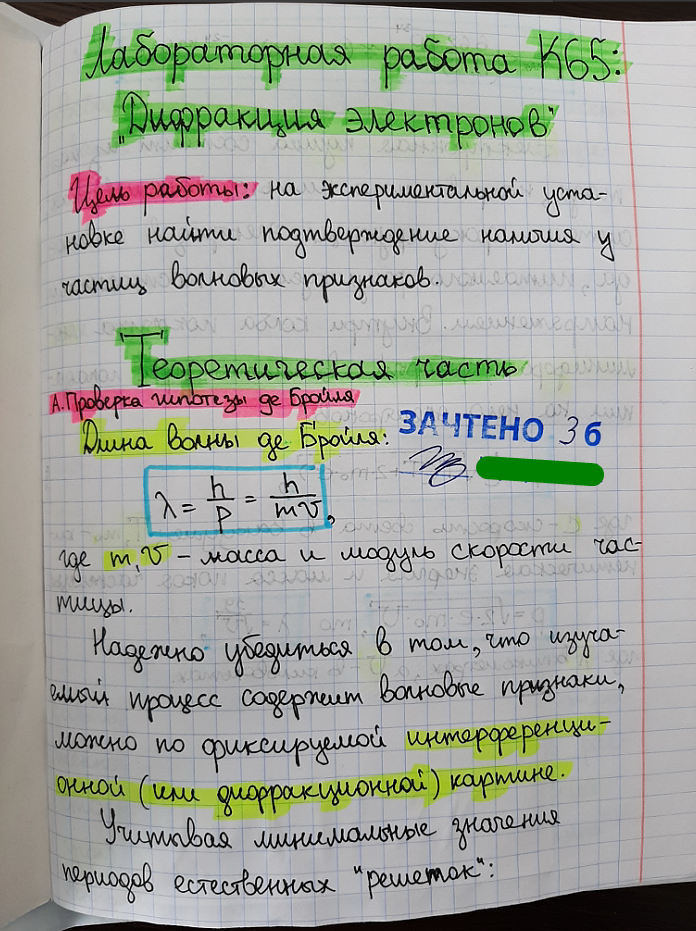 Лабораторная работа К65:
"Дифракция электронов"
Цель работы: на экспериментальной уста-
новке найти подтверждение наличия у
частиц волновых признаков.
Теоретическая часть
А. Проверка гипотезы де Бройля
Длина волны де Бройля:
ЗАЧТЕНО 3б
λ = h/p = h/mv,
где m, v – масса и модуль скорости час-
тицы.
Надежно убедиться в том, что изуча-
емый процесс содержит волновые признаки,
можно по фиксируемой интерференци-
онной (или дифракционной) картине.
Учитывая минимальные значения
периодов естественных "решеток":